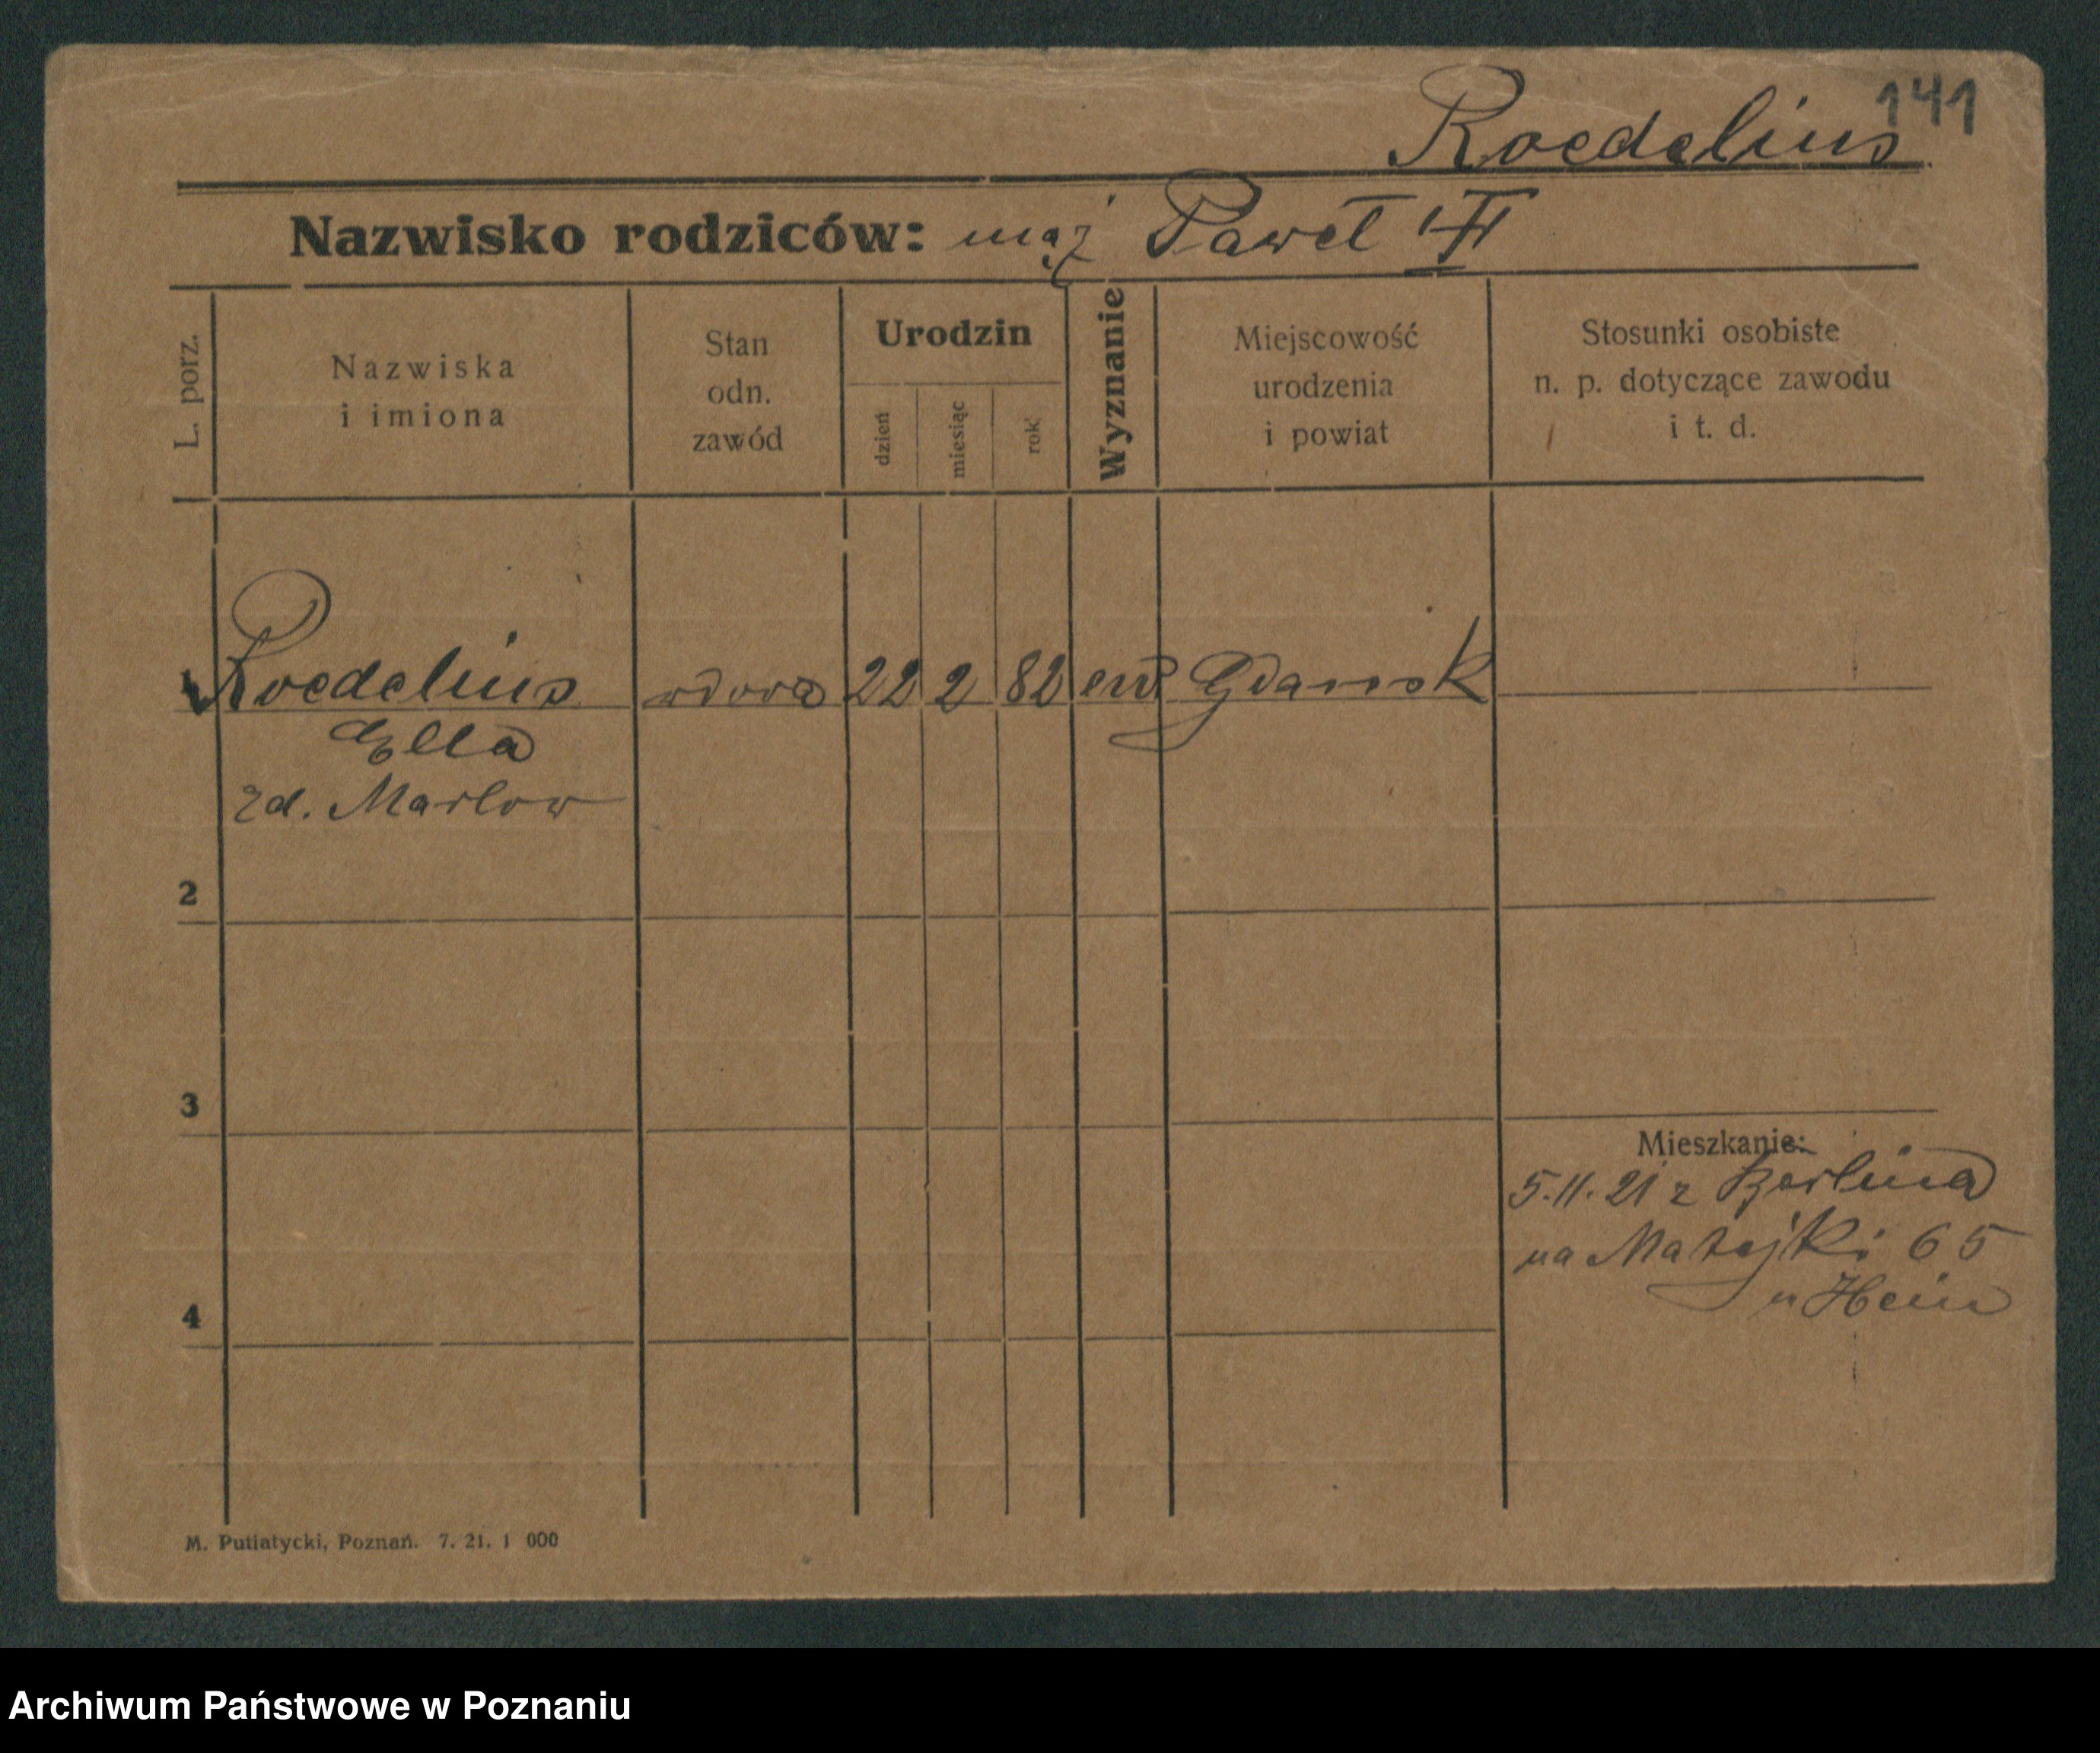 141
Roedelius
Nazwisko rodziców: mąż Paweł
L. porz.
Nazwiska
i imiona
Stan
odn.
zawód
Urodzin
dzień
miesiąc
rok
Wyznanie
Miejscowość
urodzenia
i powiat
Stosunki osobiste
n. p. dotyczące zawodu
i t. d.
1 Roedelius wdowa 22 2 82 ew Gdansk
Ella
zd. Marlow
2
3
Mieszkanie:
5.11.21 z Berlina
na Matejki 65
u Hein
4
M. Putiatycki, Poznań. 7. 21. 1 000
Archiwum Państwowe w Poznaniu